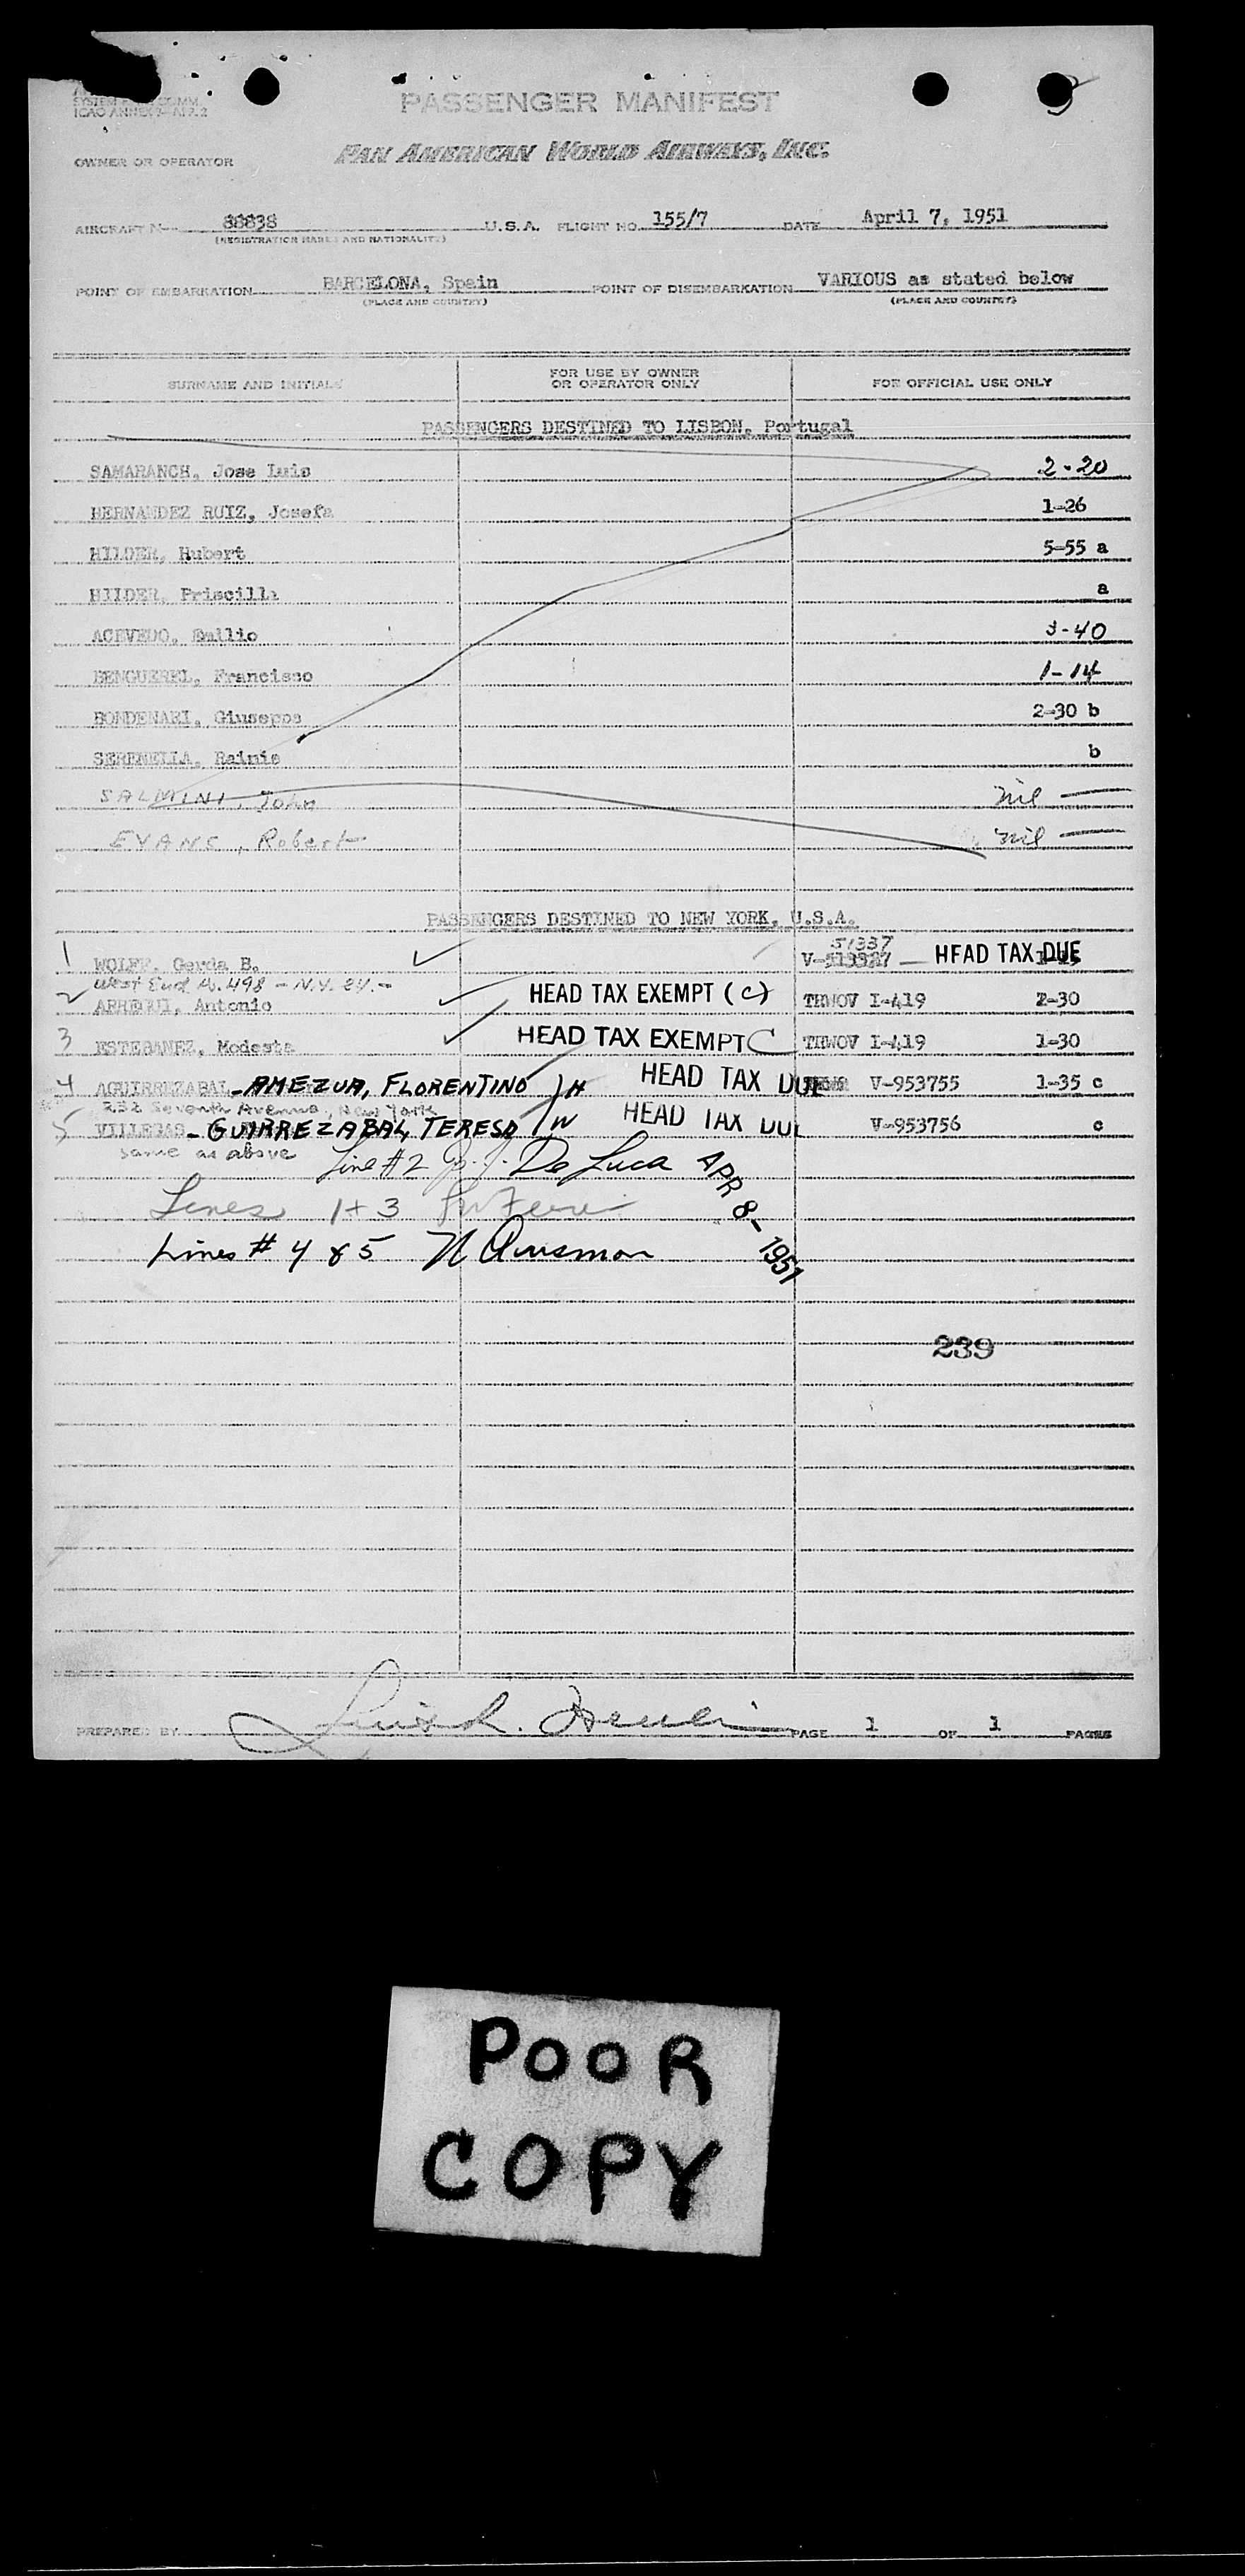 SYSTEM FORM COMM.
ICAO ANNEX 9-APP.2
PASSENGER MANIFEST
OWNER OR OPERATOR PAN AMERICAN WORLD AIRWAYS, INC.
AIRCRAFT N 88838 U.S.A. FLIGHT NO. 155/7 DATE April 7, 1951
(REGISTRATION MARKS AND NATIONALITY)
POINT OF EMBARKATION BARCELONA, Spain POINT OF DISEMBARKATION VARIOUS as stated below
(PLACE AND COUNTRY) (PLACE AND COUNTRY)
SURNAME AND INITIALS FOR USE BY OWNER OR OPERATOR ONLY FOR OFFICIAL USE ONLY
PASSENGERS DESTINED TO LISBON, Portugal
SAMARANCH, Jose Luis 2-20
HERNANDEZ RUIZ, Josefa 1-26
HILDER, Hubert 5-55 a
HILDER, Priscilla a
ACEVEDO, Emilio 3-40
BENGUEREL, Francisco 1-14
BONDENARI, Giuseppe 2-30 b
SERENELLA, Rainis b
SALMINI, John nil —
EVANS, Robert nil —
PASSENGERS DESTINED TO NEW YORK, U.S.A.
51337
1 WOLFF, Gerda B. V- HEAD TAX DUE
West End Av. 498 - N.Y. 24.-
2 Antonio HEAD TAX EXEMPT (C) I-419 2-30
3 ESTEBANEZ, Modesta HEAD TAX EXEMPT C I-419 1-30
4 AGUIRREZABAL - AMEZUA, FLORENTINO H HEAD TAX DUE V-953755 1-35 c
252 Seventh Avenue, New York
5 VILLEGAS - GUIRREZABAL, TERESO W HEAD TAX DUE V-953756 c
same as above
Line #2 De Luca APR 8- 1951
Lines 1+3
Lines # 4 & 5
239
PREPARED BY PAGE 1 OF 1 PAGES
POOR
COPY